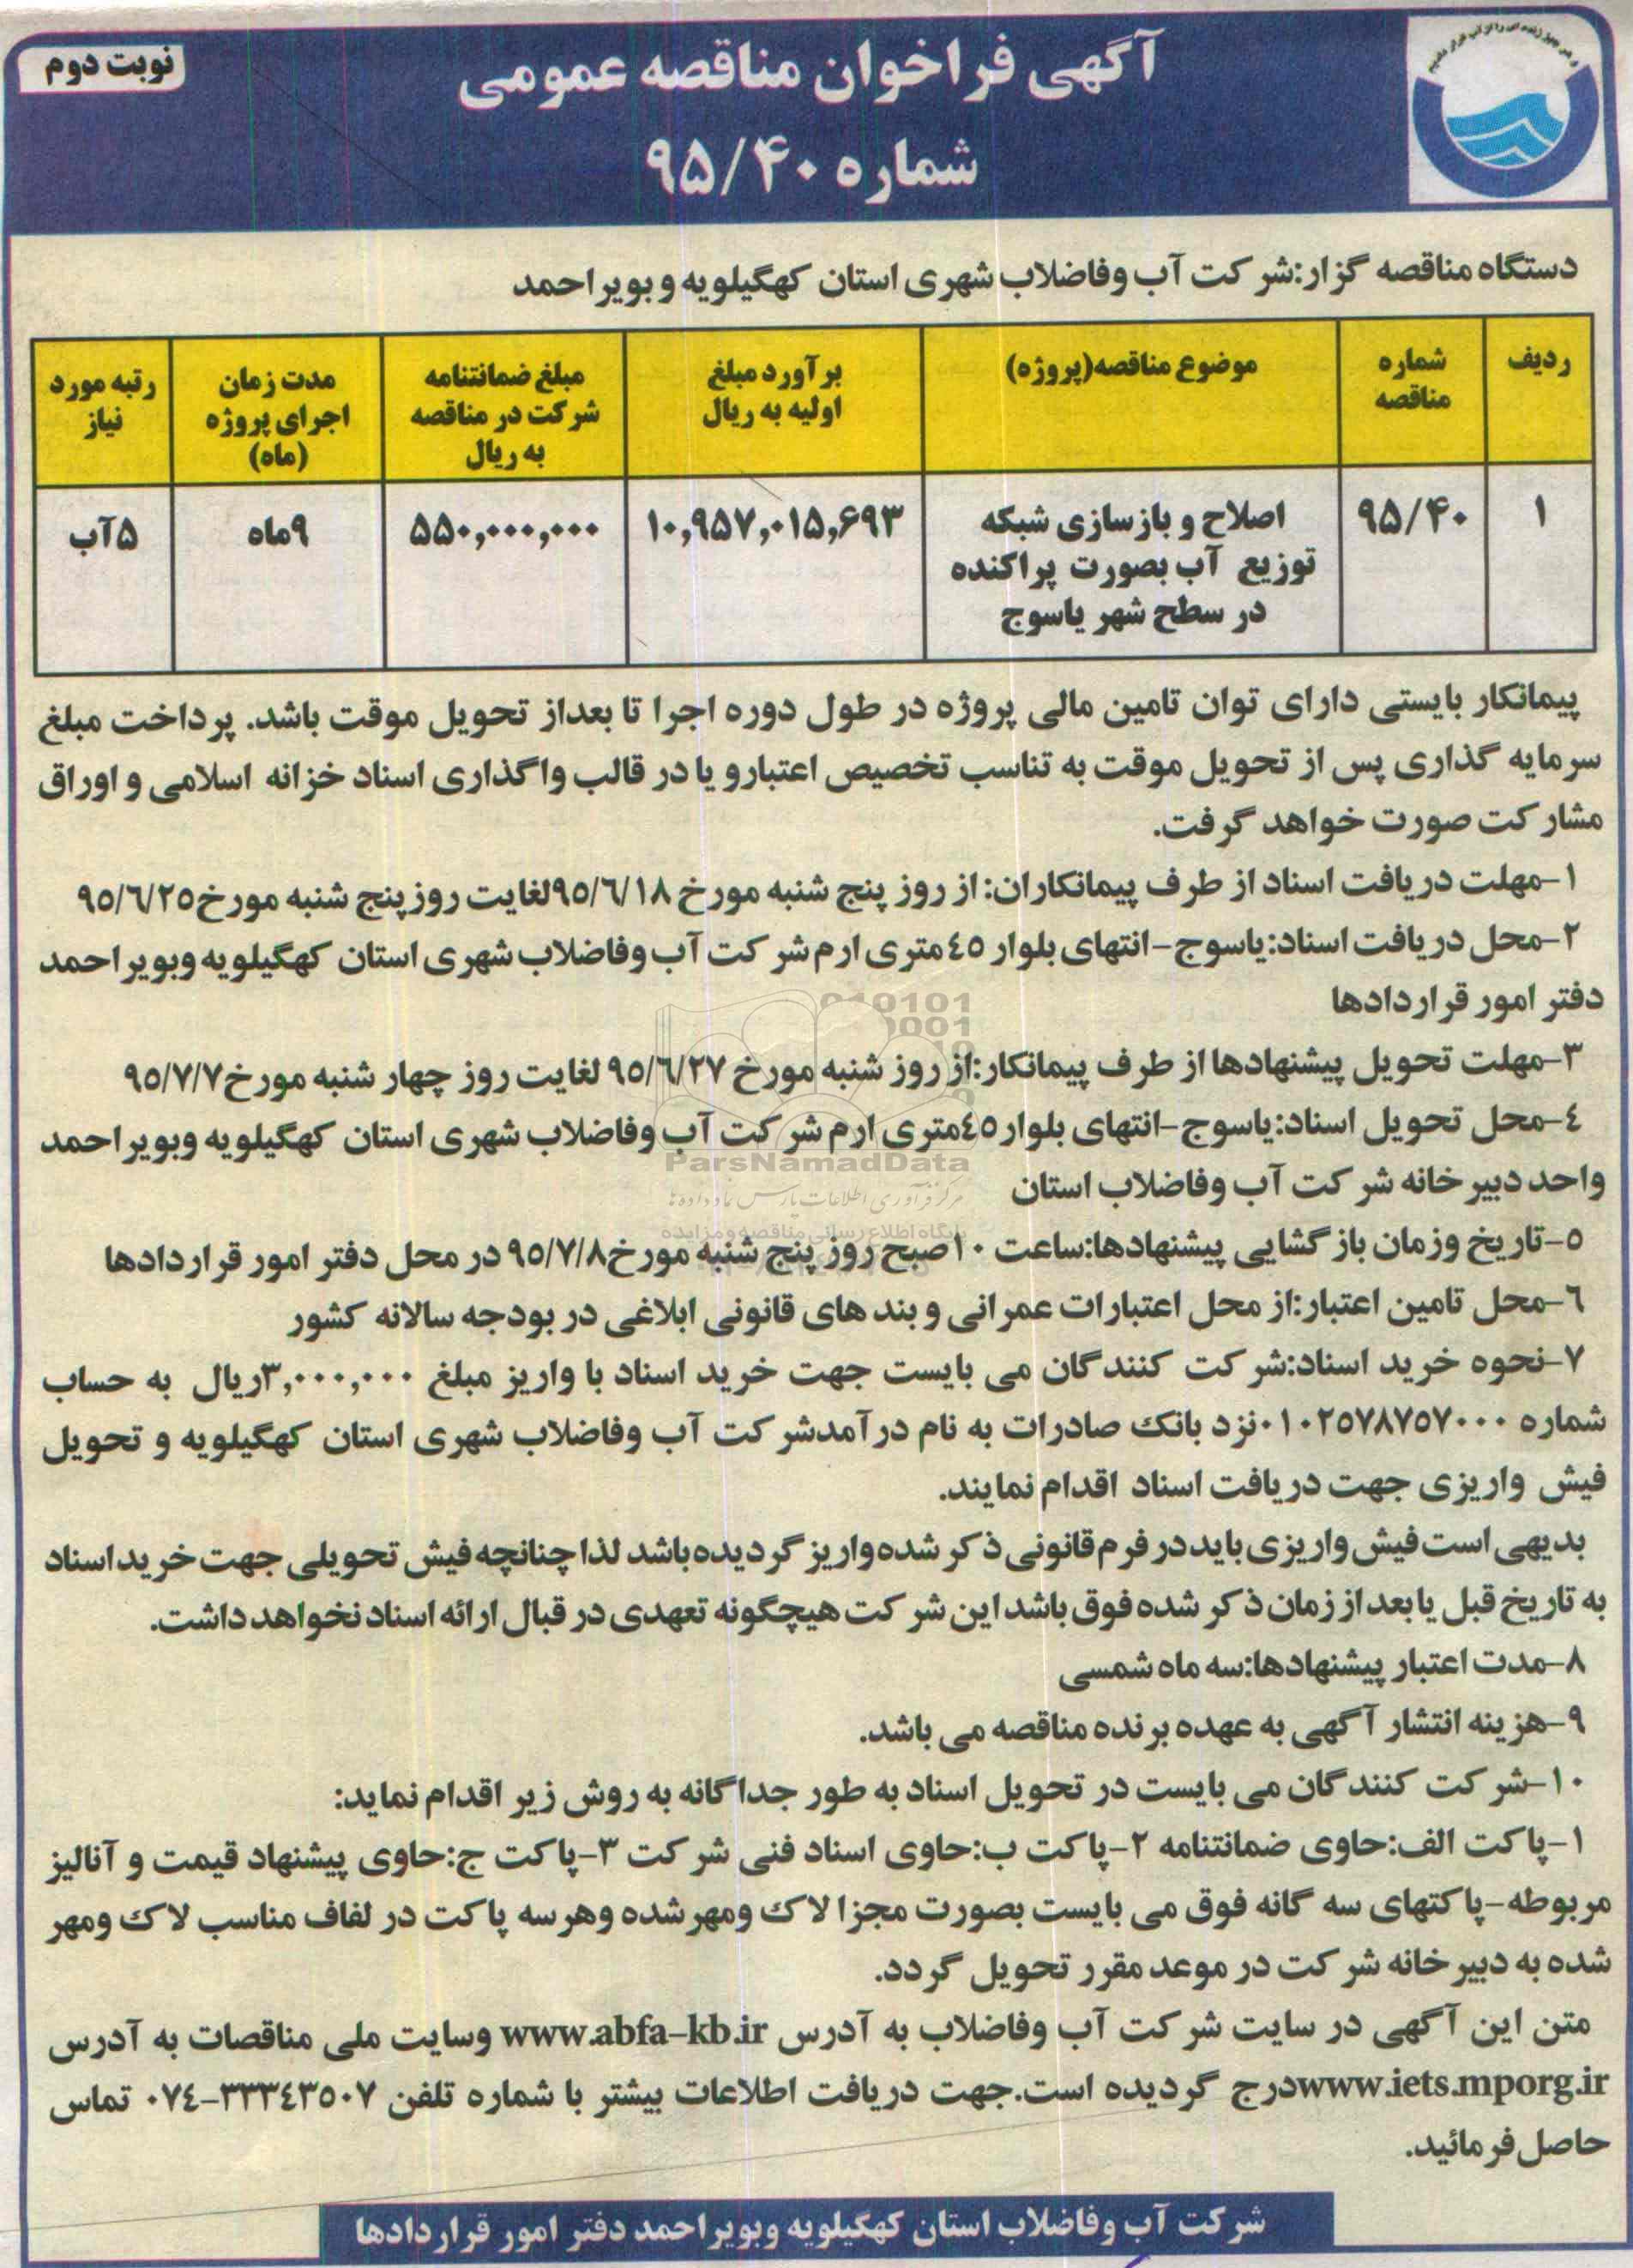 و هر چیز زنده ای را از آب قرار دادیم
آگهی فراخوان مناقصه عمومی
نوبت دوم
شماره ۹۵/۴۰
دستگاه مناقصه گزار:شرکت آب وفاضلاب شهری استان کهگیلویه و بویراحمد
ردیف
شماره
مناقصه
موضوع مناقصه(پروژه)
برآورد مبلغ
اولیه به ریال
مبلغ ضمانتنامه
شرکت در مناقصه
به ریال
مدت زمان
اجرای پروژه
(ماه)
رتبه مورد
نیاز
۱
۹۵/۴۰
اصلاح و بازسازی شبکه
توزیع آب بصورت پراکنده
در سطح شهر یاسوج
۱۰,۹۵۷,۰۱۵,۶۹۳
۵۵۰,۰۰۰,۰۰۰
۹ماه
۵آب
پیمانکار بایستی دارای توان تامین مالی پروژه در طول دوره اجرا تا بعداز تحویل موقت باشد. پرداخت مبلغ
سرمایه گذاری پس از تحویل موقت به تناسب تخصیص اعتبارو یا در قالب واگذاری اسناد خزانه اسلامی و اوراق
مشارکت صورت خواهد گرفت.
۱-مهلت دریافت اسناد از طرف پیمانکاران: از روز پنج شنبه مورخ ۹۵/۶/۱۸لغایت روزپنج شنبه مورخ۹۵/۶/۲۵
۲-محل دریافت اسناد:یاسوج-انتهای بلوار ۴۵متری ارم شرکت آب وفاضلاب شهری استان کهگیلویه وبویراحمد
دفتر امور قراردادها
۳-مهلت تحویل پیشنهادها از طرف پیمانکار:از روز شنبه مورخ ۹۵/۶/۲۷ لغایت روز چهار شنبه مورخ۹۵/۷/۷
۴-محل تحویل اسناد:یاسوج-انتهای بلوار۴۵متری ارم شرکت آب وفاضلاب شهری استان کهگیلویه وبویراحمد
واحد دبیرخانه شرکت آب وفاضلاب استان
۵-تاریخ وزمان بازگشایی پیشنهادها:ساعت ۱۰صبح روز پنج شنبه مورخ۹۵/۷/۸ در محل دفتر امور قراردادها
۶-محل تامین اعتبار:از محل اعتبارات عمرانی و بند های قانونی ابلاغی در بودجه سالانه کشور
۷-نحوه خرید اسناد:شرکت کنندگان می بایست جهت خرید اسناد با واریز مبلغ ۳,۰۰۰,۰۰۰ریال به حساب
شماره ۰۱۰۲۵۷۸۷۵۷۰۰۰نزد بانک صادرات به نام درآمدشرکت آب وفاضلاب شهری استان کهگیلویه و تحویل
فیش واریزی جهت دریافت اسناد اقدام نمایند.
بدیهی است فیش واریزی باید در فرم قانونی ذکر شده واریز گردیده باشد لذا چنانچه فیش تحویلی جهت خرید اسناد
به تاریخ قبل یا بعد از زمان ذکر شده فوق باشد این شرکت هیچگونه تعهدی در قبال ارائه اسناد نخواهد داشت.
۸-مدت اعتبار پیشنهادها:سه ماه شمسی
۹-هزینه انتشار آگهی به عهده برنده مناقصه می باشد.
۱۰-شرکت کنندگان می بایست در تحویل اسناد به طور جداگانه به روش زیر اقدام نماید:
۱-پاکت الف:حاوی ضمانتنامه ۲-پاکت ب:حاوی اسناد فنی شرکت ۳-پاکت ج:حاوی پیشنهاد قیمت و آنالیز
مربوطه-پاکتهای سه گانه فوق می بایست بصورت مجزا لاک ومهر شده وهرسه پاکت در لفاف مناسب لاک ومهر
شده به دبیرخانه شرکت در موعد مقرر تحویل گردد.
متن این آگهی در سایت شرکت آب وفاضلاب به آدرس www.abfa-kb.ir وسایت ملی مناقصات به آدرس
www.iets.mporg.irدرج گردیده است.جهت دریافت اطلاعات بیشتر با شماره تلفن ۳۳۳۴۳۵۰۷-۰۷۴ تماس
حاصل فرمائید.
شرکت آب وفاضلاب استان کهگیلویه وبویراحمد دفتر امور قراردادها
ParsNamadData
مرکز فرآوری اطلاعات پارس نماد داده ها
پایگاه اطلاع رسانی مناقصه و مزایده